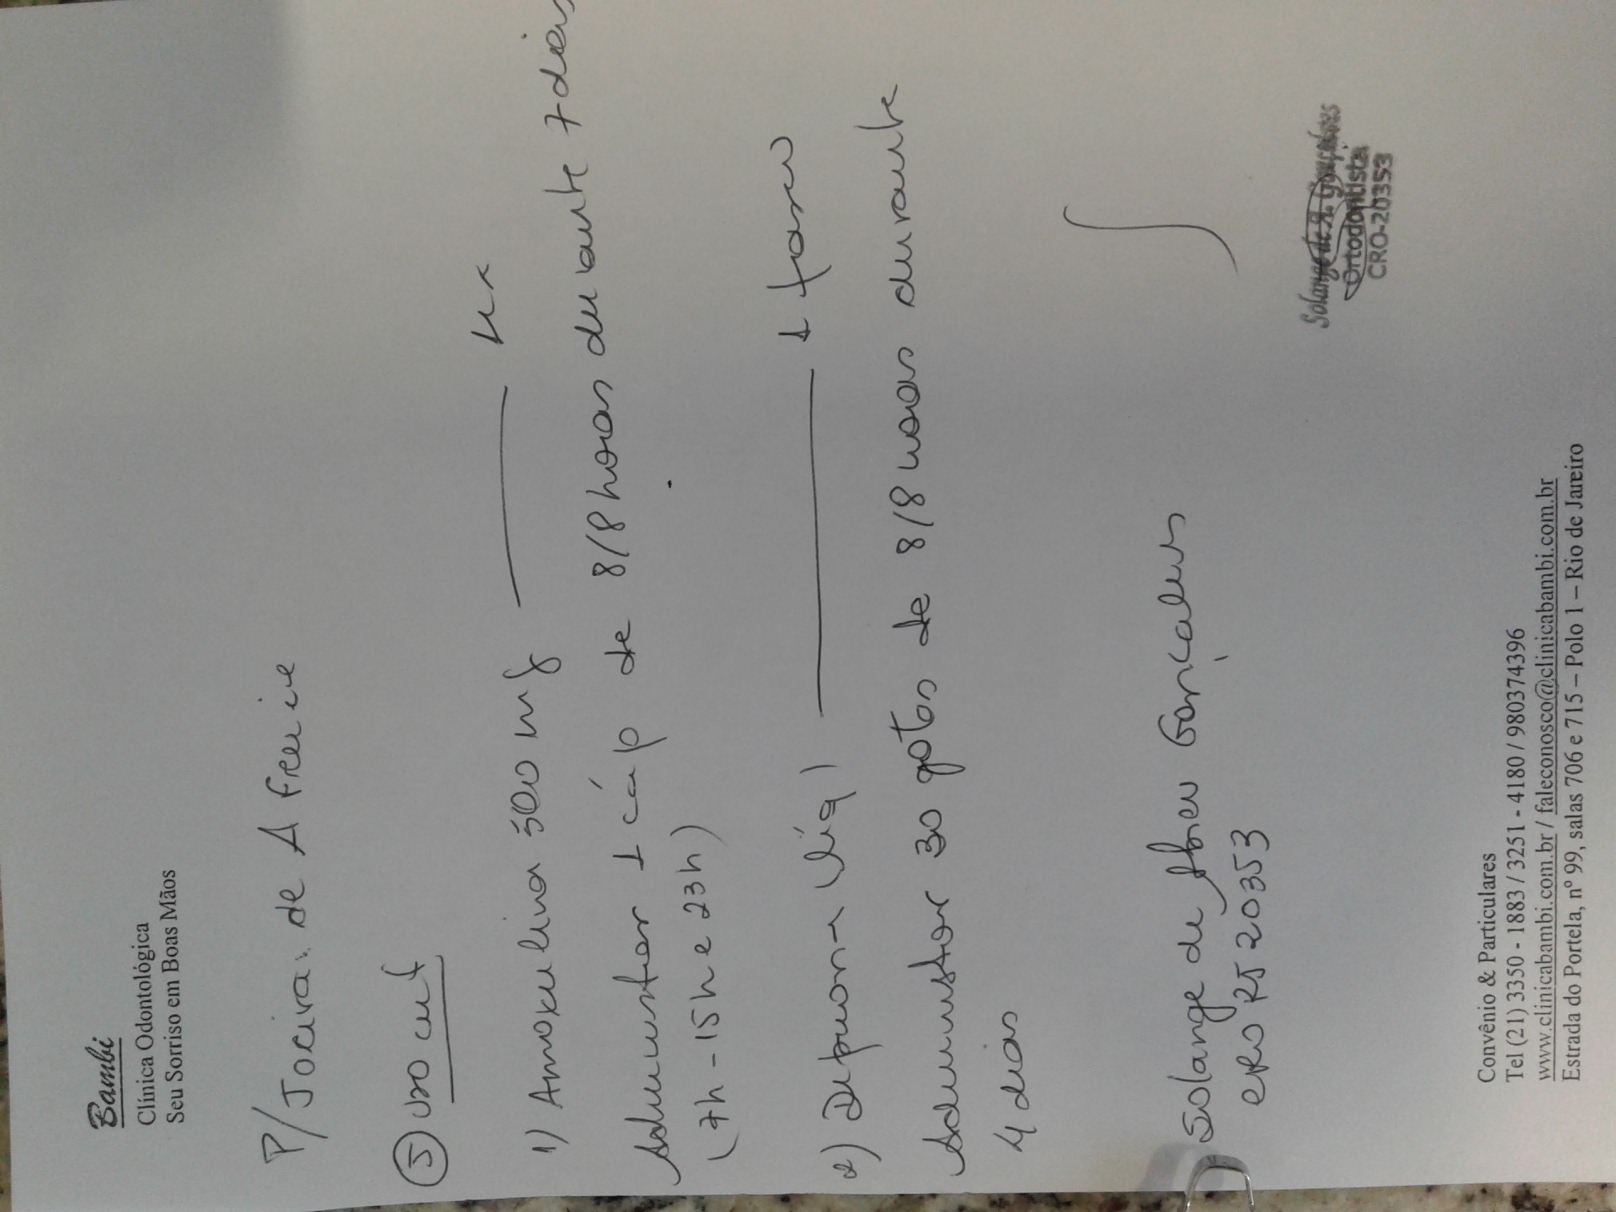 Bambi
Clínica Odontológica
Seu Sorriso em Boas Mãos
P/ Jocirai de A Freire
5 uso int
1) Amoxicilina 500 mg ——— ux
Administrar 1 cáp de 8/8 horas durante 7 dias
(7h - 15h e 23h)
2) Dipirona líq ——— 1 frasco
Administrar 30 gotas de 8/8 horas durante
4 dias
Solange de Abreu Gonçalves
CRO RJ 20353
Solange de A. Gonçalves
Ortodontista
CRO-20353
Convênio & Particulares
Tel (21) 3350 - 1883 / 3251 - 4180 / 980374396
www.clinicabambi.com.br / faleconosco@clinicabambi.com.br
Estrada do Portela, nº 99, salas 706 e 715 – Polo 1 – Rio de Janeiro